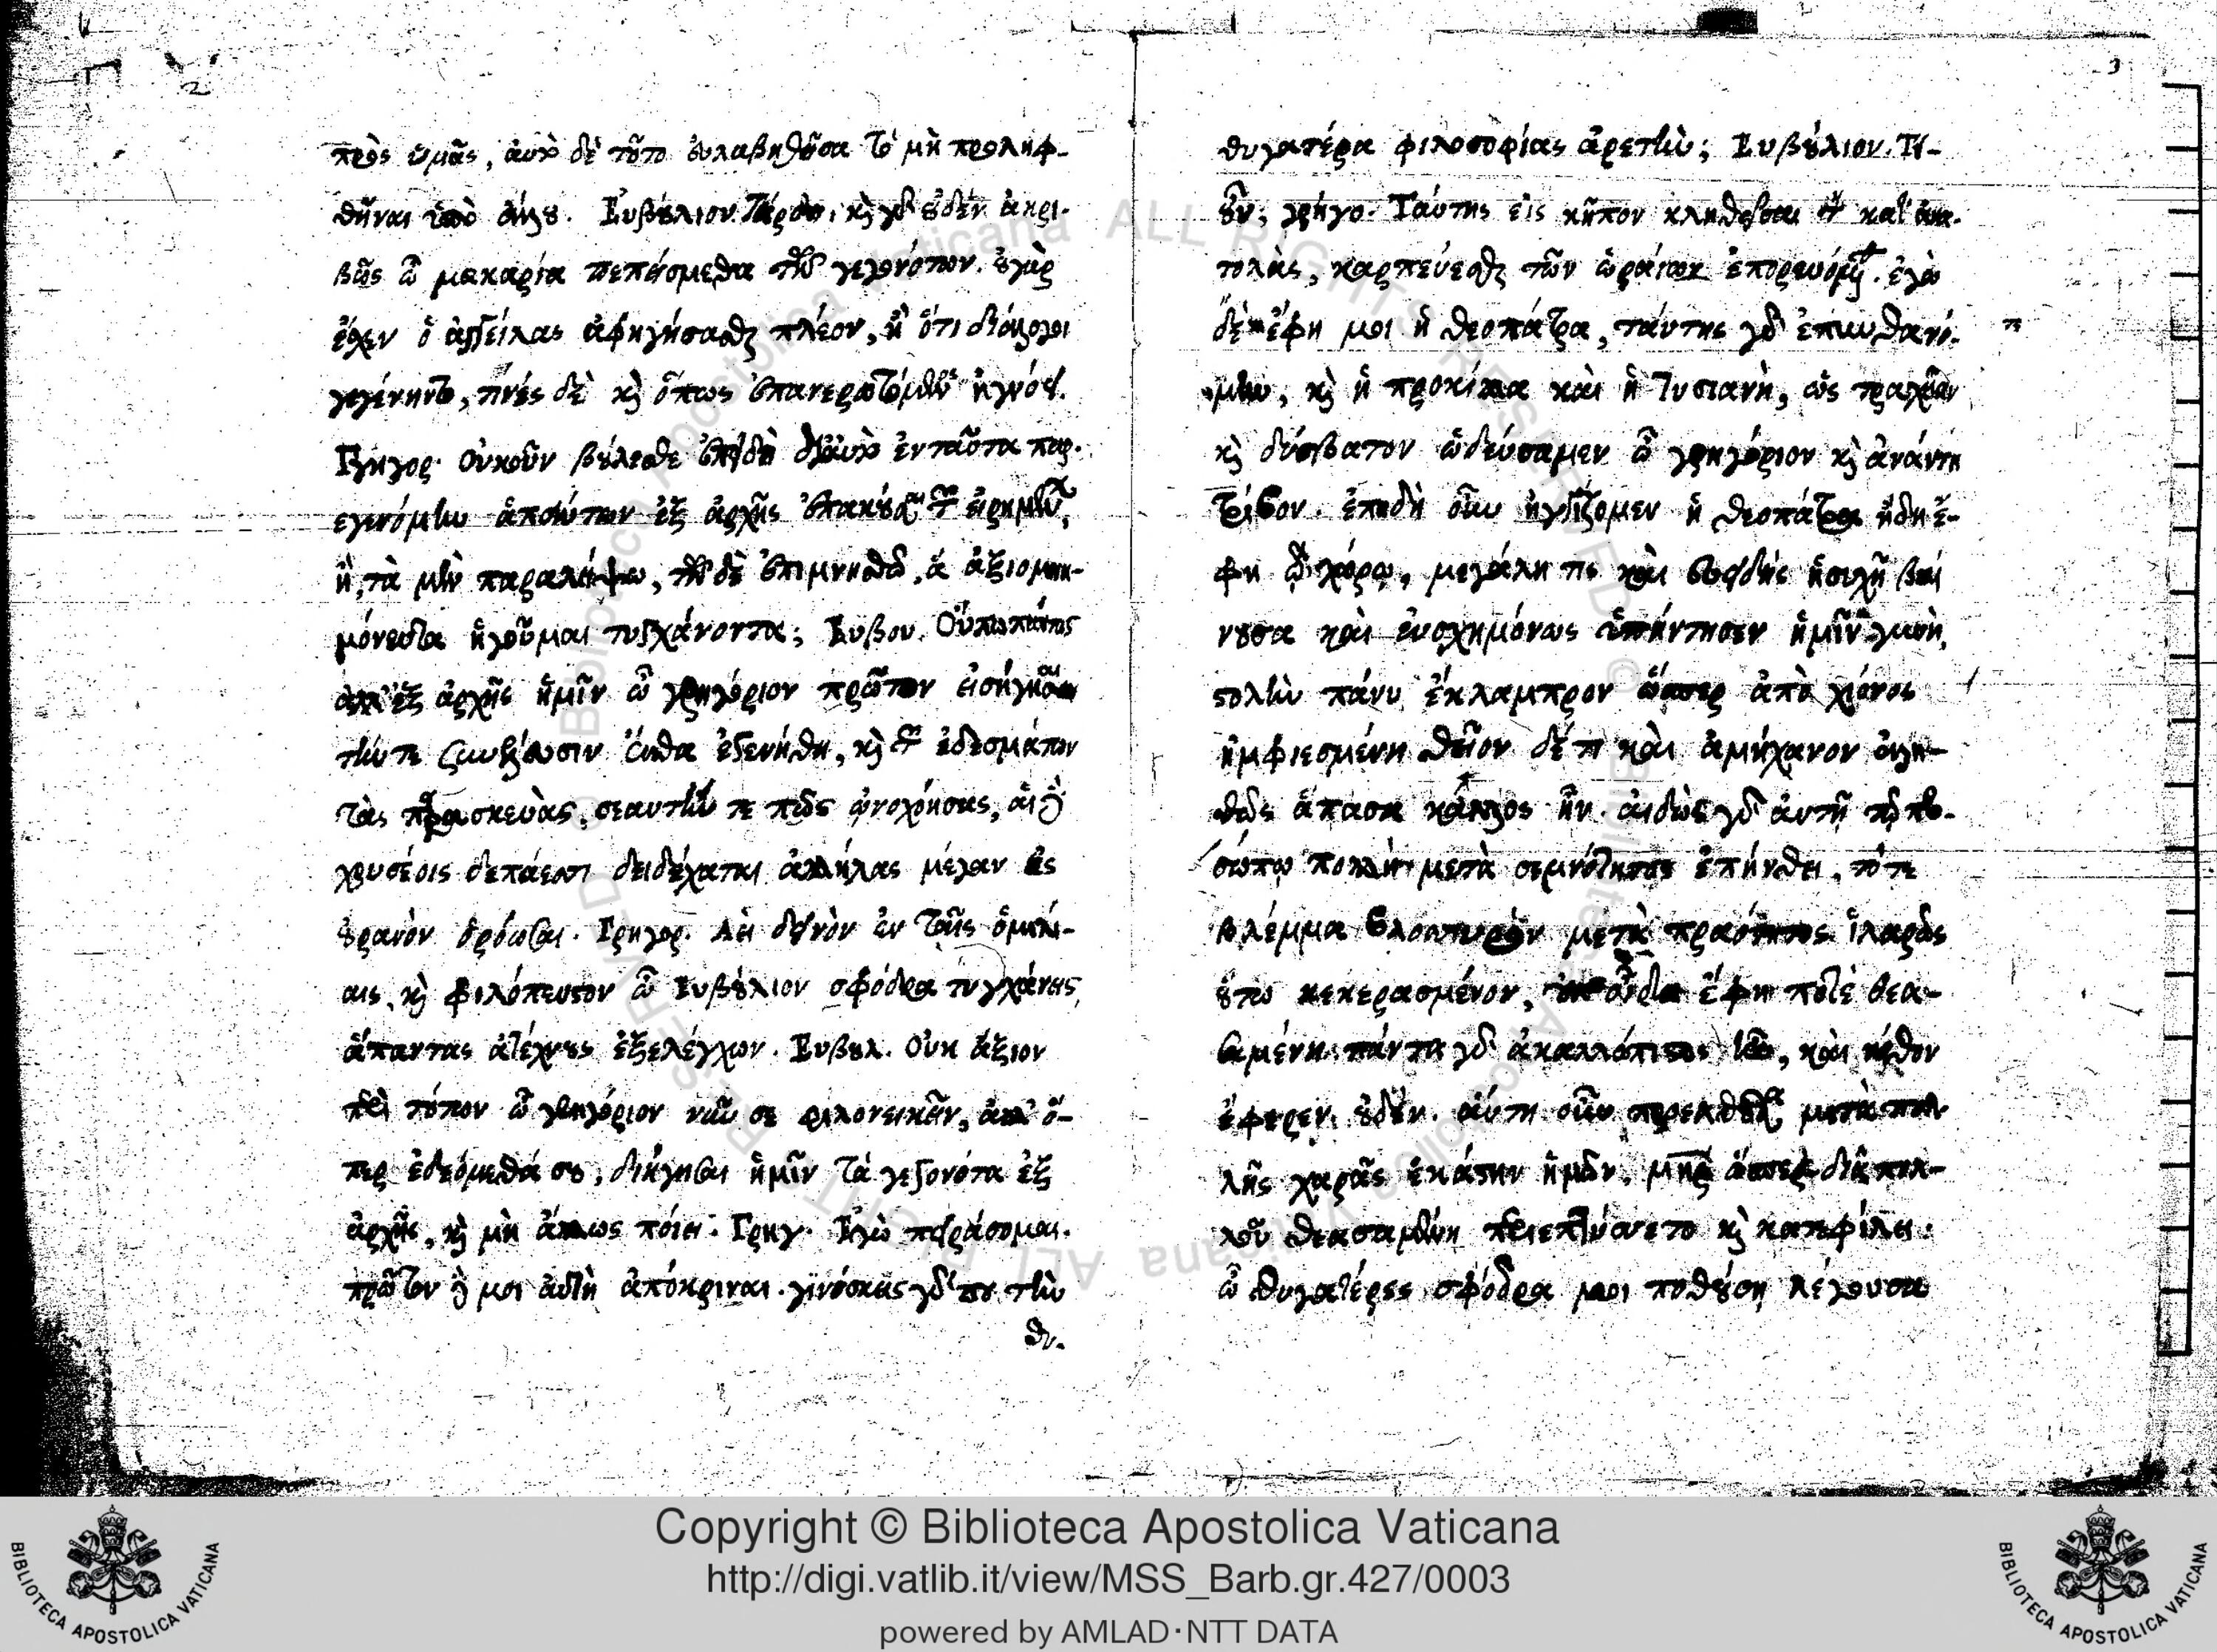 2
πρὸς ὑμᾶς, αὐτὸ δὲ τοῦτο εὐλαβηθεῖσα τὸ μὴ προληφ-
θῆναι ὑπὸ ἄλλου. Εὐβούλιον. καὶ γὰρ οὐδὲν ἀκρι-
βῶς ὦ μακαρία πεπύσμεθα τῶν γεγονότων. οὐ γὰρ
ἔσχεν ὁ ἀγγείλας ἀφηγήσασθαι πλέον, ἢ ὅτι διάλογοι
γεγένηντο, τίνες δὲ καὶ ὅπως ἐπανερωτώμενος ἠγνόει.
Γρηγορ. Οὐκοῦν βούλεσθε ἐπειδὴ διὰ αὐτὸ ἐνταῦθα παρ-
εγενόμην ἁπάντων ἐξ ἀρχῆς ἐπακοῦσαι τῶν εἰρημένων,
ἢ, τὰ μὲν παραλείψω, τῶν δὲ ἐπιμνησθῶ, ἃ ἀξιομνη-
μόνευτα ἡγοῦμαι τυγχάνοντα; Ευβου. Οὔπω πάντως
ἀλλ' ἐξ ἀρχῆς ἡμῖν ὦ γρηγόριον πρῶτον εἰσήγησαι
τήν τε συνέλευσιν ἔνθα ἐγενήθη, καὶ τῶν ἐδεσμάτων
τὰς παρασκευὰς, σεαυτήν τε πῶς ᾠνοχόησας, αἱ δὲ
χρυσέοις δεπάεσσι δειδέχαται ἀλλήλας μέγαν εἰς
οὐρανὸν ὁρόωσαι. Γρηγορ. Ἀεὶ δεινὸν ἐν ταῖς ὁμιλί-
αις, καὶ φιλόπευστον ὦ Εὐβούλιον σφόδρα τυγχάνεις
ἅπαντας ἀτέχνως ἐξελέγχων. Ευβουλ. Οὐκ ἄξιον
περὶ τούτου ὦ γρηγόριον νῦν σε φιλονεικεῖν, ἀλλ' ὅ-
περ ἐδεόμεθά σου, διήγησαι ἡμῖν τὰ γεγονότα ἐξ
ἀρχῆς, καὶ μὴ ἄλλως ποίει. Γρηγ. Ἐγὼ πειράσομαι.
πρῶτον δέ μοι αὐτὴ ἀπόκριναι. γινώσκεις γὰρ που τὴν
θυ-
3
θυγατέρα φιλοσοφίας ἀρετήν; Εὐβούλιον. Τί-
οὖν; γρηγο. Ταύτης εἰς κῆπον κληθεῖσαι τῶν κατ' ἀνα-
τολὰς, καρπεύεσθαι τῶν ὡραίων ἐπορευόμεθα. ἐγὼ
δὲ ἔφη μοι ἡ θεοπάτρα, ταύτης γὰρ ἐπυνθανό-
μην, καὶ ἡ προκίλλα καὶ ἡ Τυσιανὴ, ὡς τραχεῖαν
καὶ δύσβατον ὡδεύσαμεν ὦ γρηγόριον καὶ ἀνάντη
τρίβον. ἐπειδὴ οὖν ἠγγίζομεν ἡ θεοπάτρα ἤδη ἔ-
φη τῷ χώρῳ, μεγάλη τις καὶ εὐειδὴς ἡσυχῆ βαί
νουσα καὶ εὐσχημόνως ὑπήντησεν ἡμῖν γυνὴ,
στολὴν πάνυ ἔκλαμπρον ὥσπερ ἀπὸ χιόνος
ἠμφιεσμένη θεῖον δέ τι καὶ ἀμήχανον ἀλη-
θῶς ἅπασα κάλλος ἦν. αἰδὼς γὰρ αὐτῇ τῷ προ-
σώπῳ πολλὴ μετὰ σεμνότητος ἐπήνθει, τό τε
βλέμμα βλοσυρὸν μετὰ πραότητος ἱλαρῶς
οὕτω κεκερασμένον, οἷον ἔφη ποτὲ θεα-
σαμένη. πάντα γὰρ ἀκαλλώπιστος ἦν, καὶ νόθον
ἔφερεν οὐδέν. αὕτη οὖν προσελθοῦσα μετὰ πολ
λῆς χαρᾶς ἑκάστην ἡμῶν, μήτηρ ὥσπερ διὰ πολ-
λοῦ θεασαμένη περιεπτύσσετο καὶ κατεφίλει.
ὦ θυγατέρες σφόδρα μοι ποθούσῃ λέγουσα
Copyright © Biblioteca Apostolica Vaticana
http://digi.vatlib.it/view/MSS_Barb.gr.427/0003
powered by AMLAD·NTT DATA
BIBLIOTECA APOSTOLICA VATICANA
BIBLIOTECA APOSTOLICA VATICANA